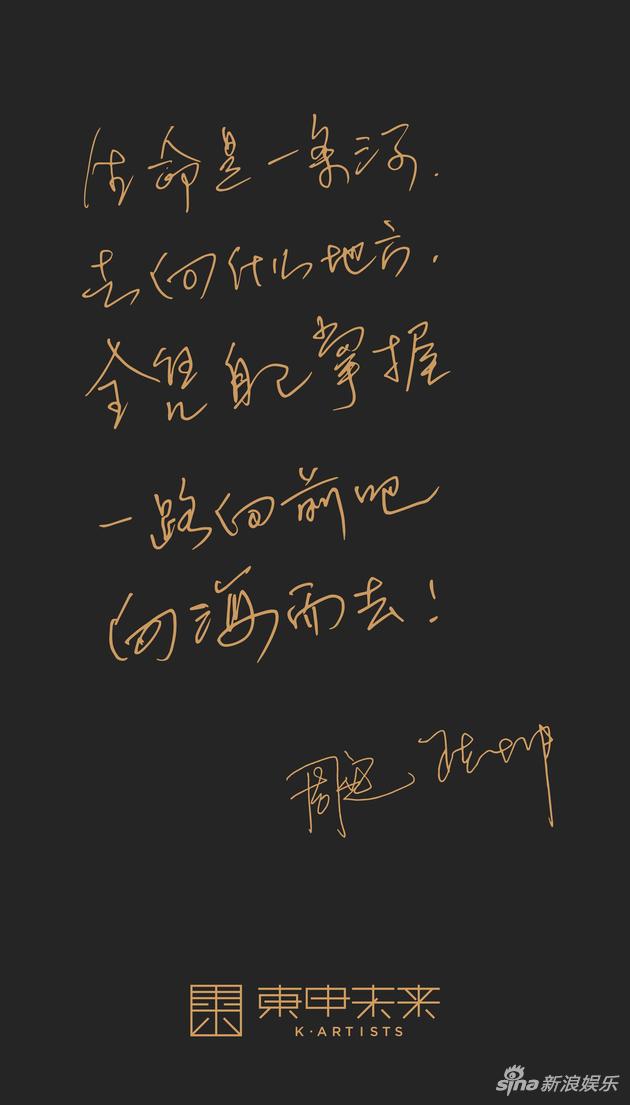 生命是一条河.
去向什么地方.
全凭自己掌握
一路向前吧
向海而去!
周迅 陈坤
東申未来
K·ARTISTS
sina新浪娱乐